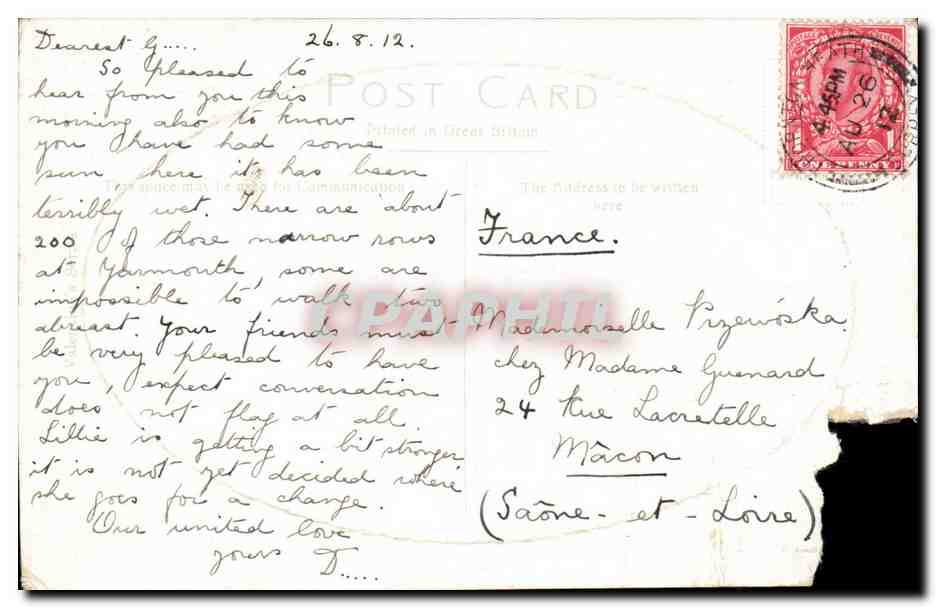 Dearest G.....
26.8.12.
So pleased to
hear from you this
morning also to know
you have had some
sun here it has been
terribly wet. There are about
200 of those narrow rows
at Yarmouth, some are
impossible to walk two
abreast. Your friends must
be very pleased to have
you, expect conversation
does not flag at all.
Lillie is getting a bit stronger
it is not yet decided where
she goes for a change.
Our united love
yours D.....
POST CARD
Printed in Great Britain
This space may be used for Communication
The Address to be written
here
France.
Mademoiselle Przewóska.
chez Madame Guenard
24 Rue Lacretelle
Mâcon
(Saône-et-Loire)
ONE PENNY
4.45PM
AU 26
12
CPAPHIL